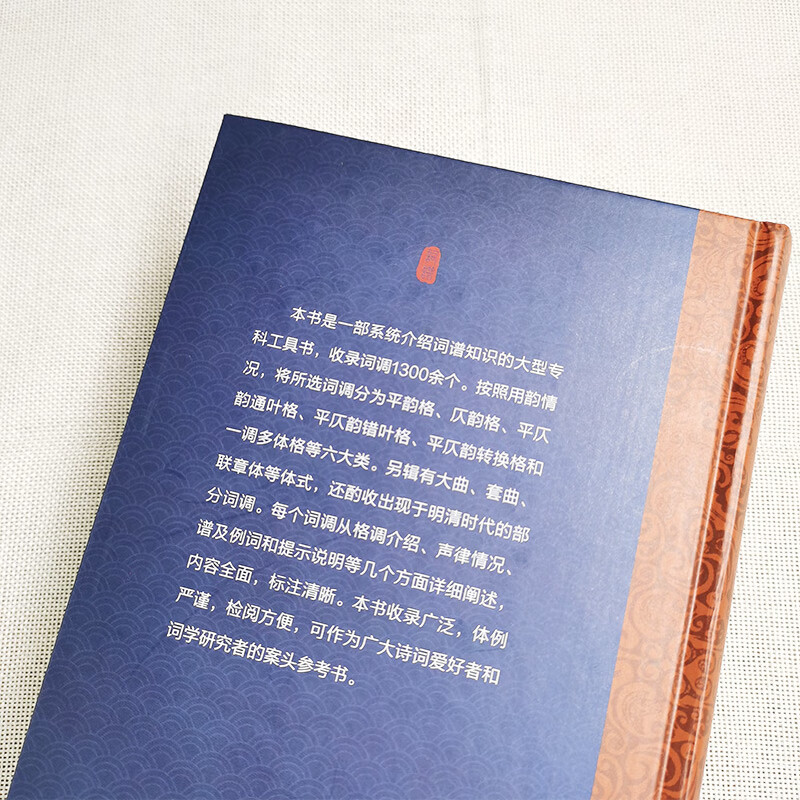 本书是一部系统介绍词谱知识的大型专
科工具书，收录词调1300余个。按照用韵情
况，将所选词调分为平韵格、仄韵格、平仄
韵通叶格、平仄韵错叶格、平仄韵转换格和
一调多体格等六大类。另辑有大曲、套曲、
联章体等体式，还酌收出现于明清时代的部
分词调。每个词调从格调介绍、声律情况、
谱及例词和提示说明等几个方面详细阐述，
内容全面，标注清晰。本书收录广泛，体例
严谨，检阅方便，可作为广大诗词爱好者和
词学研究者的案头参考书。